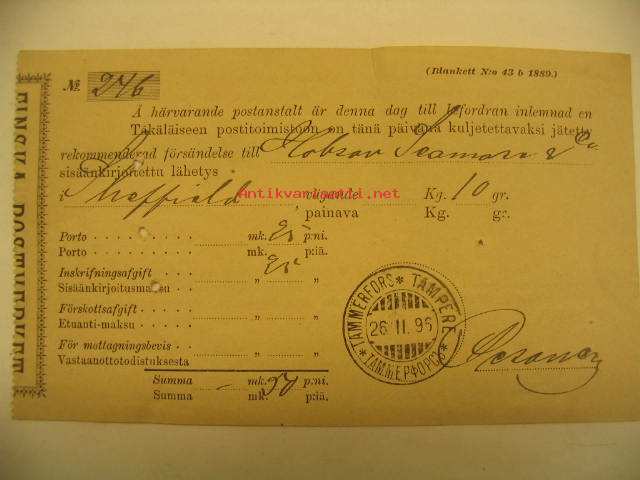 (Blankett N:o 43 b 1889.)
№ 246
Å härvarande postanstalt är denna dag till befordran inlemnad en
Täkäläiseen postitoimistoon on tänä päivänä kuljetettavaksi jätetty
rekommenderad försändelse till Hobson & Co
sisäänkirjoitettu lähetys
i Sheffield vägande Kg. 10 gr.
painava Kg. gr.
Antikvariaatti.net
Porto mk. 25 p:ni.
Porto mk. p:iä.
Inskrifningsafgift „ 25 „
Sisäänkirjoitusmaksu „ „
Förskottsafgift „ „
Etuanti-maksu „ „
För mottagningsbevis „ „
Vastaanottotodistuksesta „ „
Summa - mk. 50 p:ni.
Summa mk. p:iä.
TAMMERFORS * TAMPERE
26 II. 96
* ТАММЕРФОРСЪ *
FINSKA POSTVERKET